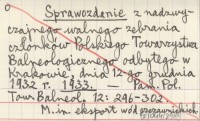 Sprawozdanie z nadzwy-
czajnego walnego zebrania
członków Polskiego Towarzystwa
Balneologicznego odbytego w
Krakowie, dnia 12-go grudnia
1932 r. 1933. — Pam. Pol.
Tow. Balneol. 12: 296-302.
M. in. eksport wód szczawnickich